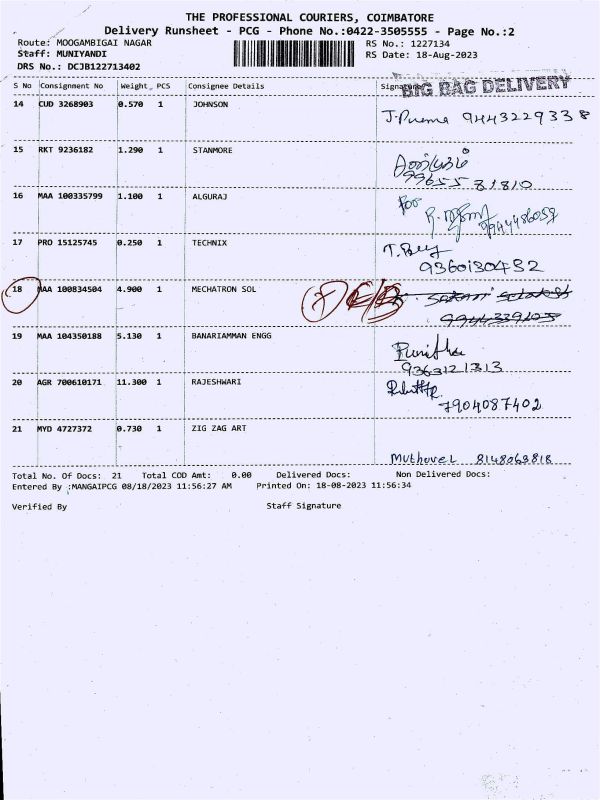 THE PROFESSIONAL COURIERS, COIMBATORE
Delivery Runsheet - PCG - Phone No.:0422-3505555 - Page No.:2
Route: MOOGAMBIGAI NAGAR RS No.: 1227134
Staff: MUNIYANDI RS Date: 18-Aug-2023
DRS No.: DCJB122713402
BIG BAG DELIVERY
S No Consignment No Weight PCS Consignee Details Signature
14 CUD 3268903 0.570 1 JOHNSON
J. Prema 9443229338
15 RKT 9236182 1.290 1 STANMORE
99655 81810
16 MAA 100335799 1.100 1 ALGURAJ
For
9944486059
17 PRO 15125745 0.250 1 TECHNIX
9360130432
18 MAA 100834504 4.900 1 MECHATRON SOL
19 MAA 104350188 5.130 1 BANARIAMMAN ENGG
Punitha
9363121313
20 AGR 700610171 11.300 1 RAJESHWARI
7904087402
21 MYD 4727372 0.730 1 ZIG ZAG ART
Muthuvel 8148063818
Total No. Of Docs: 21 Total COD Amt: 0.00 Delivered Docs: Non Delivered Docs:
Entered By :MANGAIPCG 08/18/2023 11:56:27 AM Printed On: 18-08-2023 11:56:34
Verified By Staff Signature